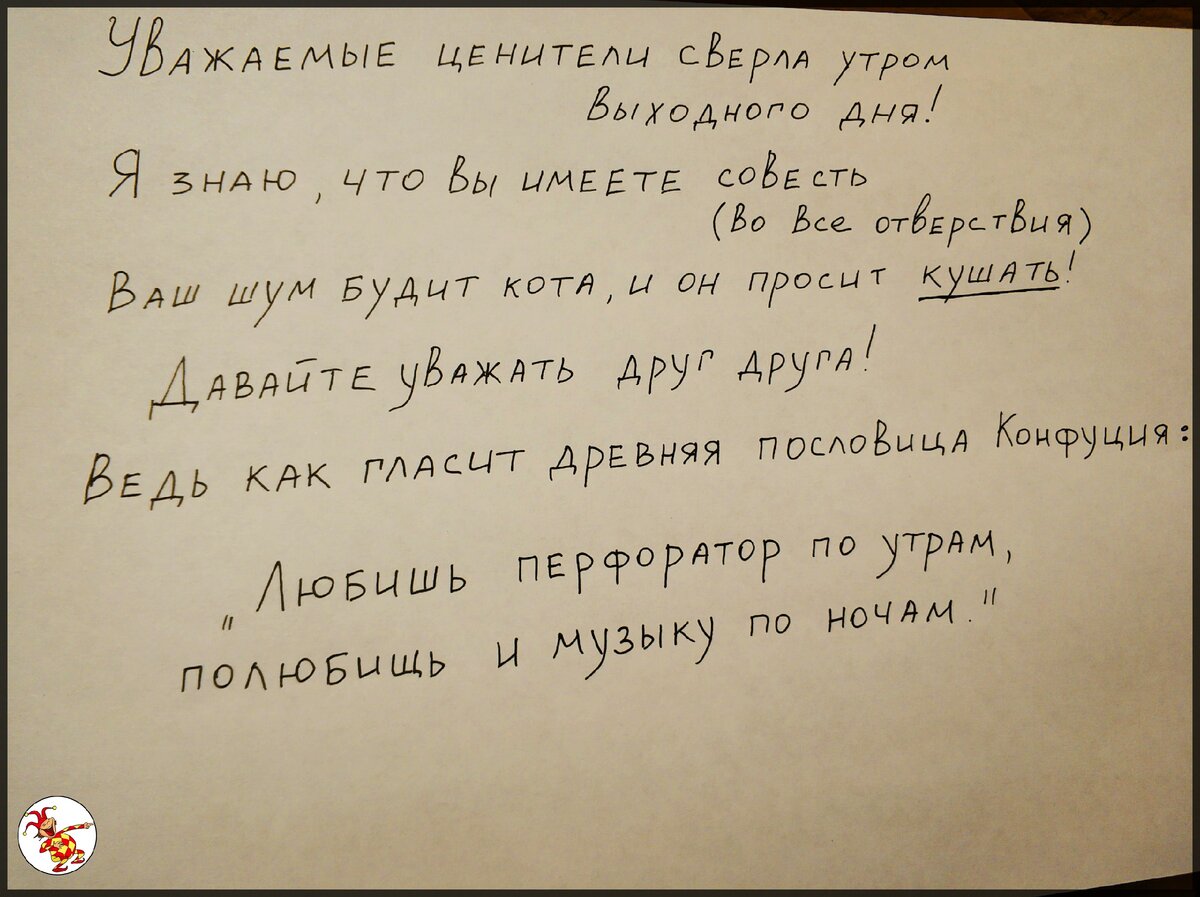 Уважаемые ценители сверла утром
выходного дня!
Я знаю, что вы имеете совесть
(во все отверствия)
Ваш шум будит кота, и он просит кушать!
Давайте уважать друг друга!
Ведь как гласит древняя пословица Конфуция:
„Любишь перфоратор по утрам,
полюбищь и музыку по ночам."